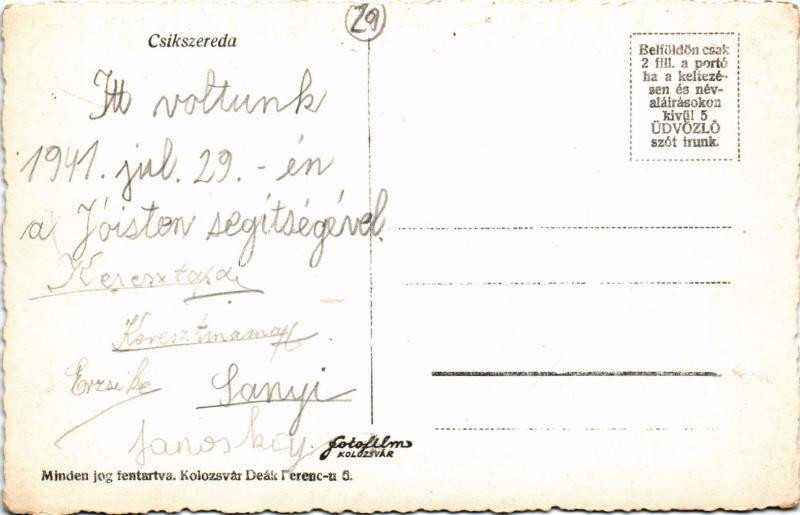 29
Csikszereda
Belföldön csak
2 fill. a portó
ha a keltezé-
sen és név-
aláirásokon
kivül 5
ÜDVÖZLŐ
szót irunk.
Itt voltunk
1941. jul. 29. - én
a Jóisten segítségével.
Keresztapa
Keresztmama
Erzsike Sanyi
fotofilm
KOLOZSVÁR
Minden jog fentartva. Kolozsvár Deák Ferenc-u 5.